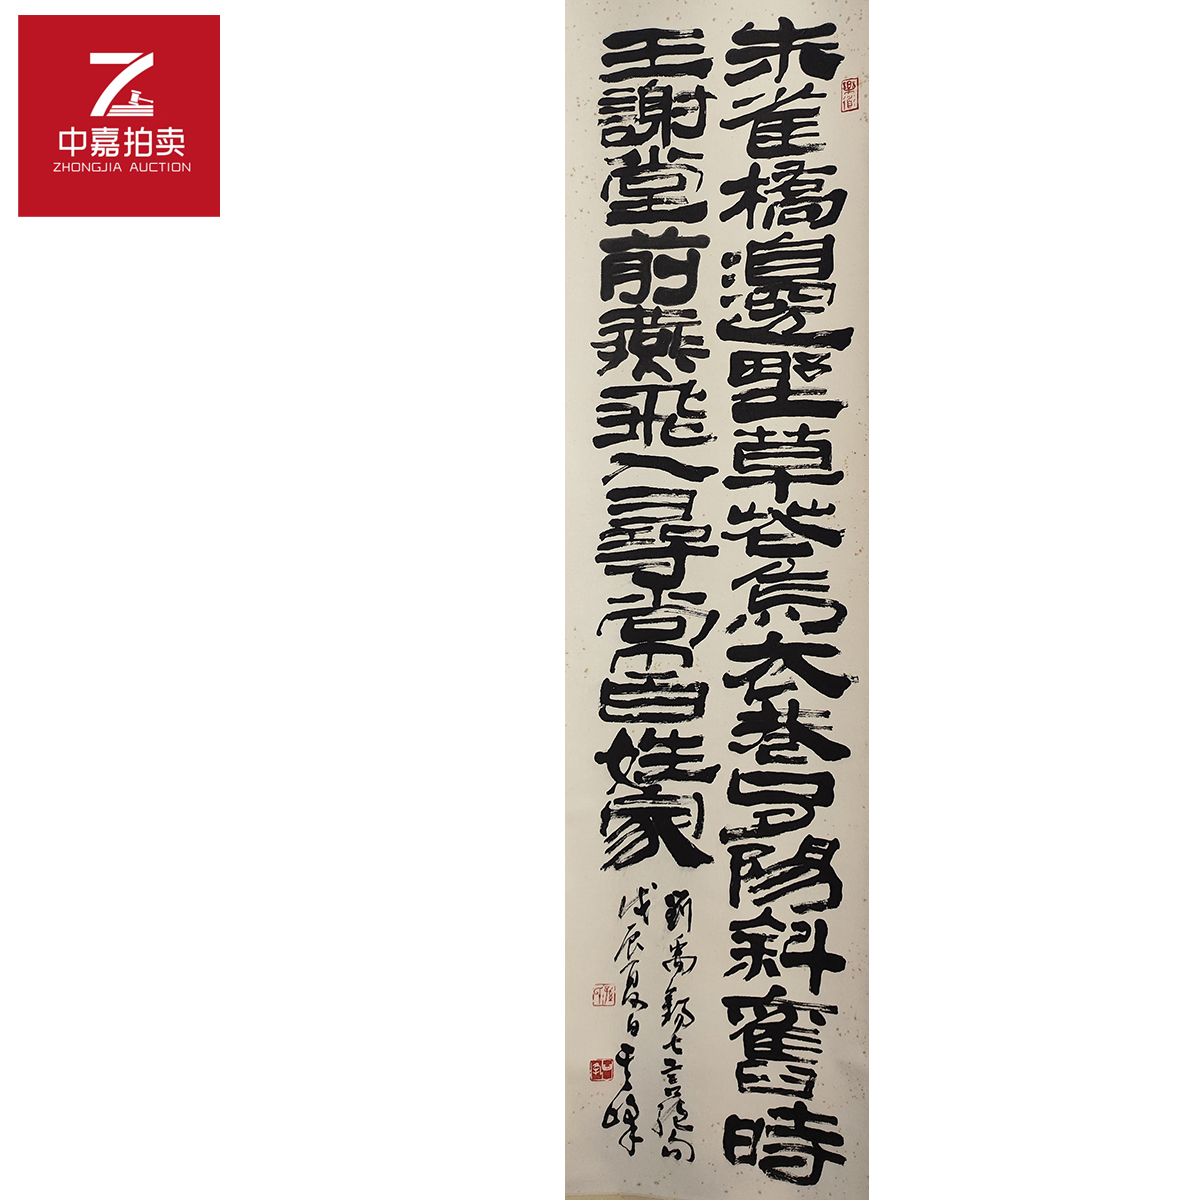 中嘉拍卖
ZHONGJIA AUCTION
朱雀橋邊野草花烏衣巷口夕陽斜舊時
王謝堂前燕飛入尋常百姓家
劉禹錫七言絕句
戊辰夏日其峰